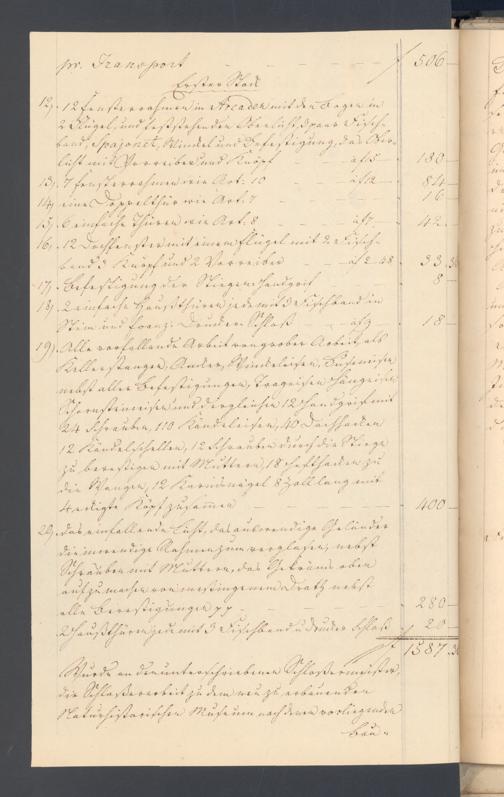 pr. Transport f 506 –
Erster Stock
12). 12 Fensterrahmen in Arcaden mit den Bogen in
2 Flügel, und feststehenden Oberlicht, 3 paar Fisch-
band, Espajonet, Windel und Befestigung, das Ober-
licht mit Vorreiber und Knopf à f 15 – 180 –
13). 7 Fensterrahmen wie Art: 10 à f 12 – 84 –
14). eine Doppelthür wie Art. 7 – 16 –
15). 6 einfache Thüren wie Art. 8 à f 7 – 42 –
16). 12 Dachfenster mit einem Flügel mit 2 Fisch-
band 3 Knöpf und 2 Vorreiber à f 2.48 33.36
17). Befestigung der Stiegenhandgriff – 8 –
18). 2 einfache Hausthüren jede mit 3 Fischband in
Stein und franz. Drucker Schloß à f 9 – 18 –
19). Alle vorfallende Arbeit von grober Arbeit als
Kellerstangen, Ander, Windeleisen, Buseneisen
nebst aller Befestigungen, Trageisen Hängeisen
Schornsteineisen und dergleichen 12 Handgriff mit
24 Schrauben, 110 Kändeleisen, 40 Dachhacken
12 Kändelschellen, 12 Schrauben durch die Stiege
zu befestigen mit Muttern, 18 Hefthacken zu
die Wangen, 12 Karnisnägel 8 Zoll lang mit
4 eckigte Köpf zusammen – 400 –
20). das einfallende Licht, das auswendige Geländer
die inwendige Rahmen zum verglasen, nebst
Schrauben mit Muttern, das Gekräms oben
aufzumachen von messingenem Drath nebst
alle Befestigungen pp – 280 –
2 Hausthüren jede mit 3 Fischband u drucker Schloß – 20 –
f 1587.36
Wurde an den unterschriebenen Schlossermeister,
die Schlosserarbeit zu dem neu zu erbauenden
Naturhistorischen Museum nach denen vorliegenden
Bau-